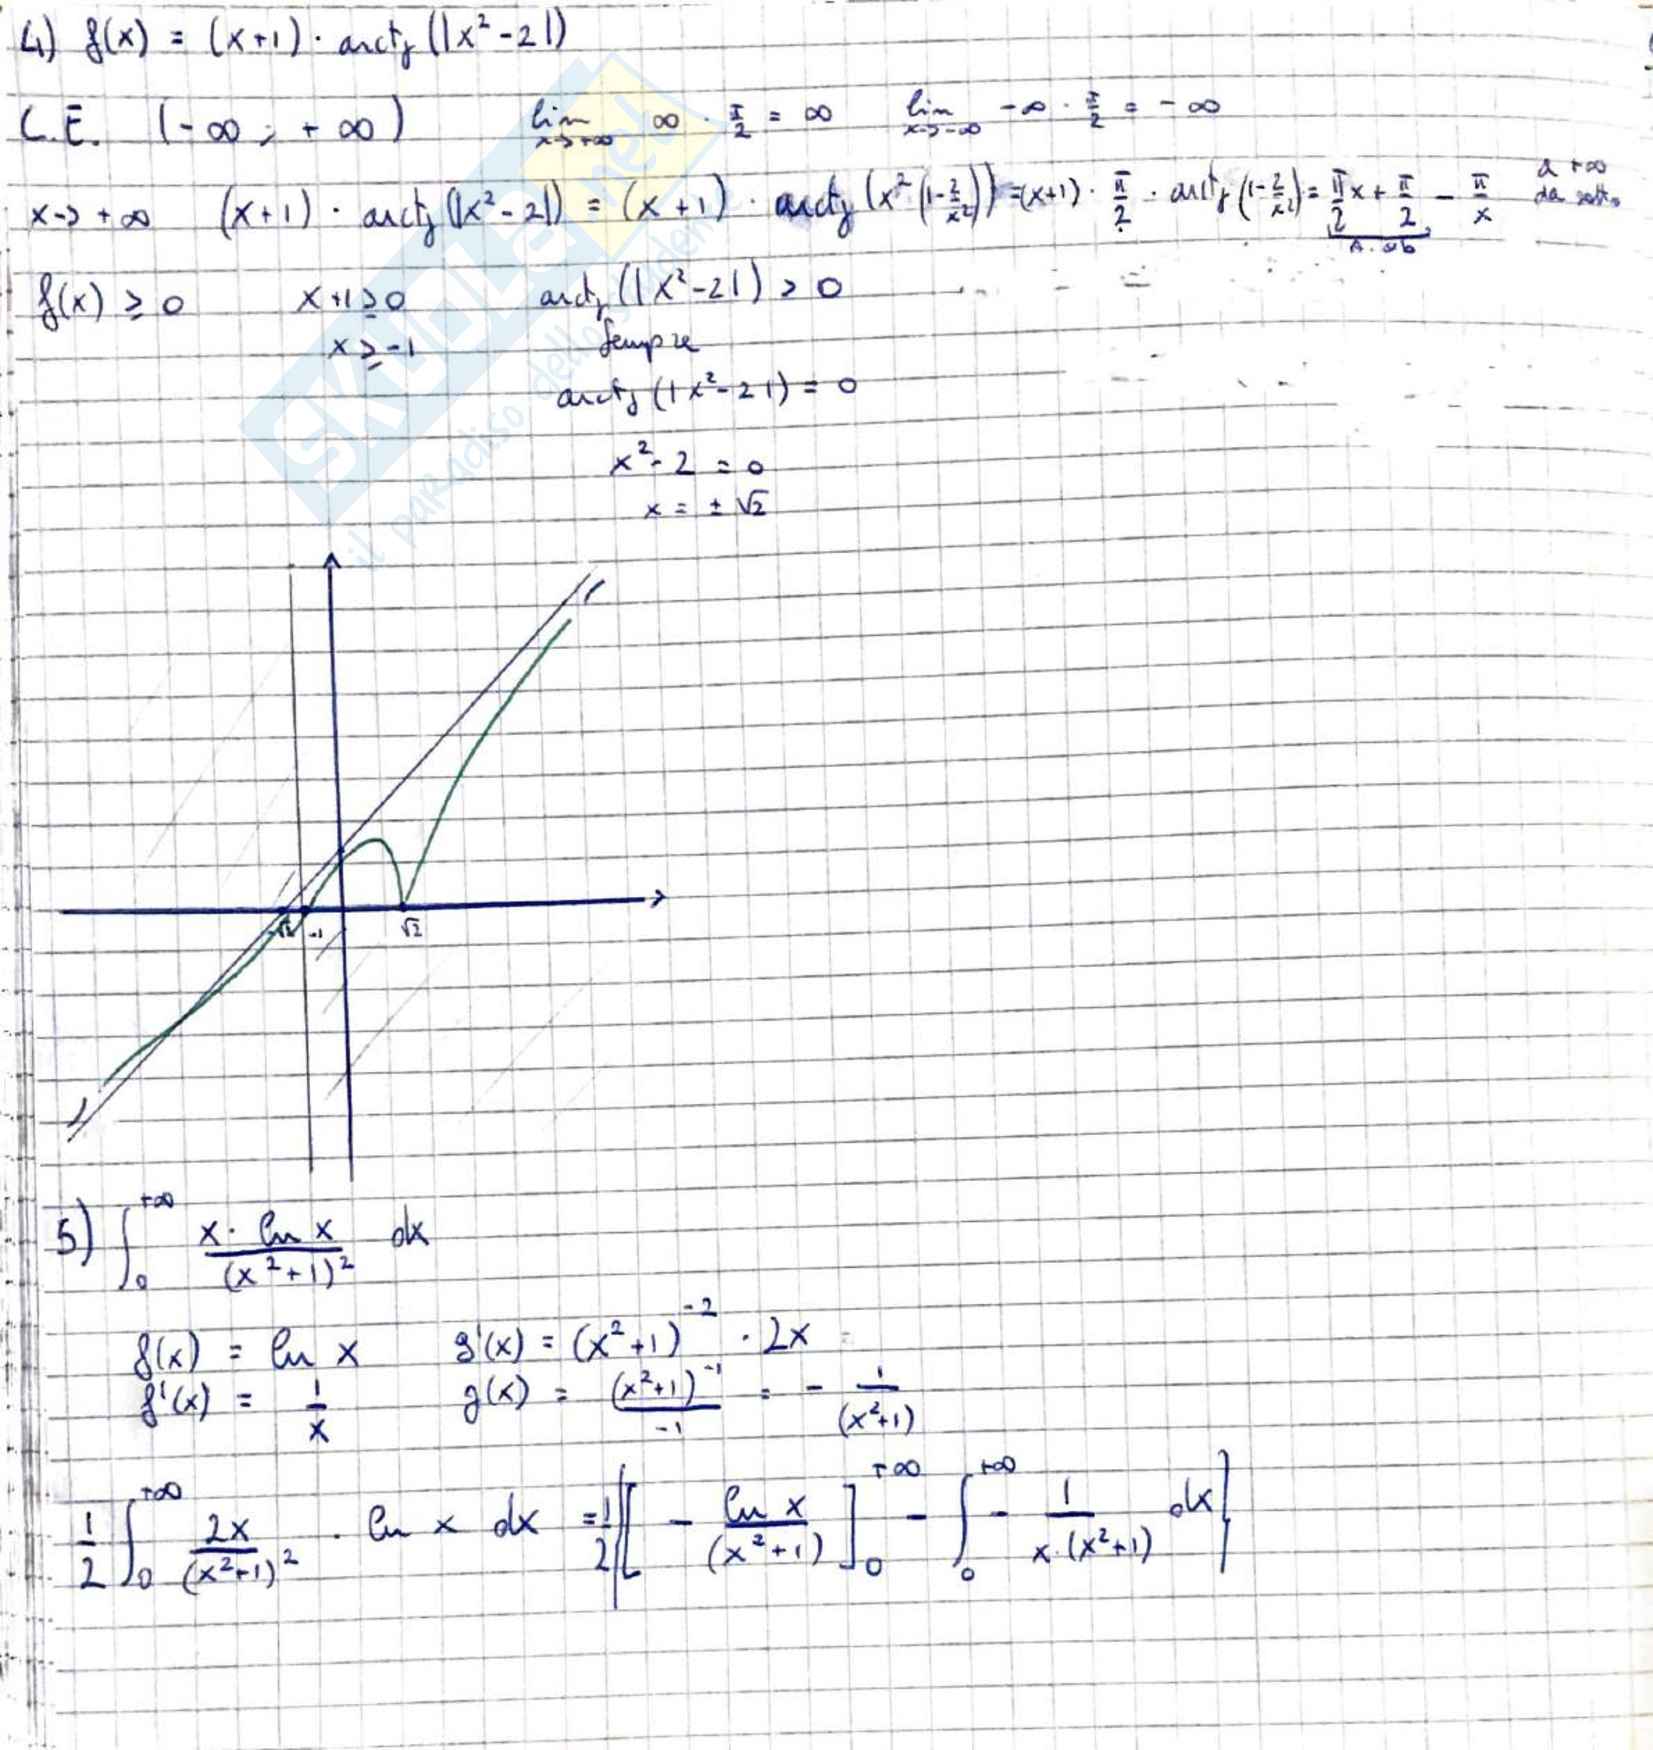 4) f(x) = (x+1) · arctg (|x²-2|)
C.E. (-∞ ; +∞) lim x→+∞ ∞ · π/2 = ∞ lim x→-∞ -∞ · π/2 = -∞
x→+∞ (x+1) · arctg (|x²-2|) = (x+1) · arctg (x² (1-2/x²)) = (x+1) · π/2 · arctg (1-2/x²) = π/2 x + π/2 - π/x a +∞ da sotto
A. ob
f(x) ≥ 0 x+1 ≥ 0 arctg (|x²-2|) > 0
x ≥ -1 Sempre
arctg (|x²-2|) = 0
x²-2 = 0
x = ± √2
-√2 -1 √2
5) ∫₀^{+∞} x · ln x / (x²+1)² dx
f(x) = ln x g'(x) = (x²+1)^{-2} · 2x
f'(x) = 1/x g(x) = (x²+1)^{-1} / -1 = - 1/(x²+1)
1/2 ∫₀^{+∞} 2x/(x²+1)² · ln x dx = 1/2 { [ - ln x/(x²+1) ]₀^{+∞} - ∫₀^{+∞} - 1/(x·(x²+1)) dx }
SKUOLA.net
il paradiso dello studente